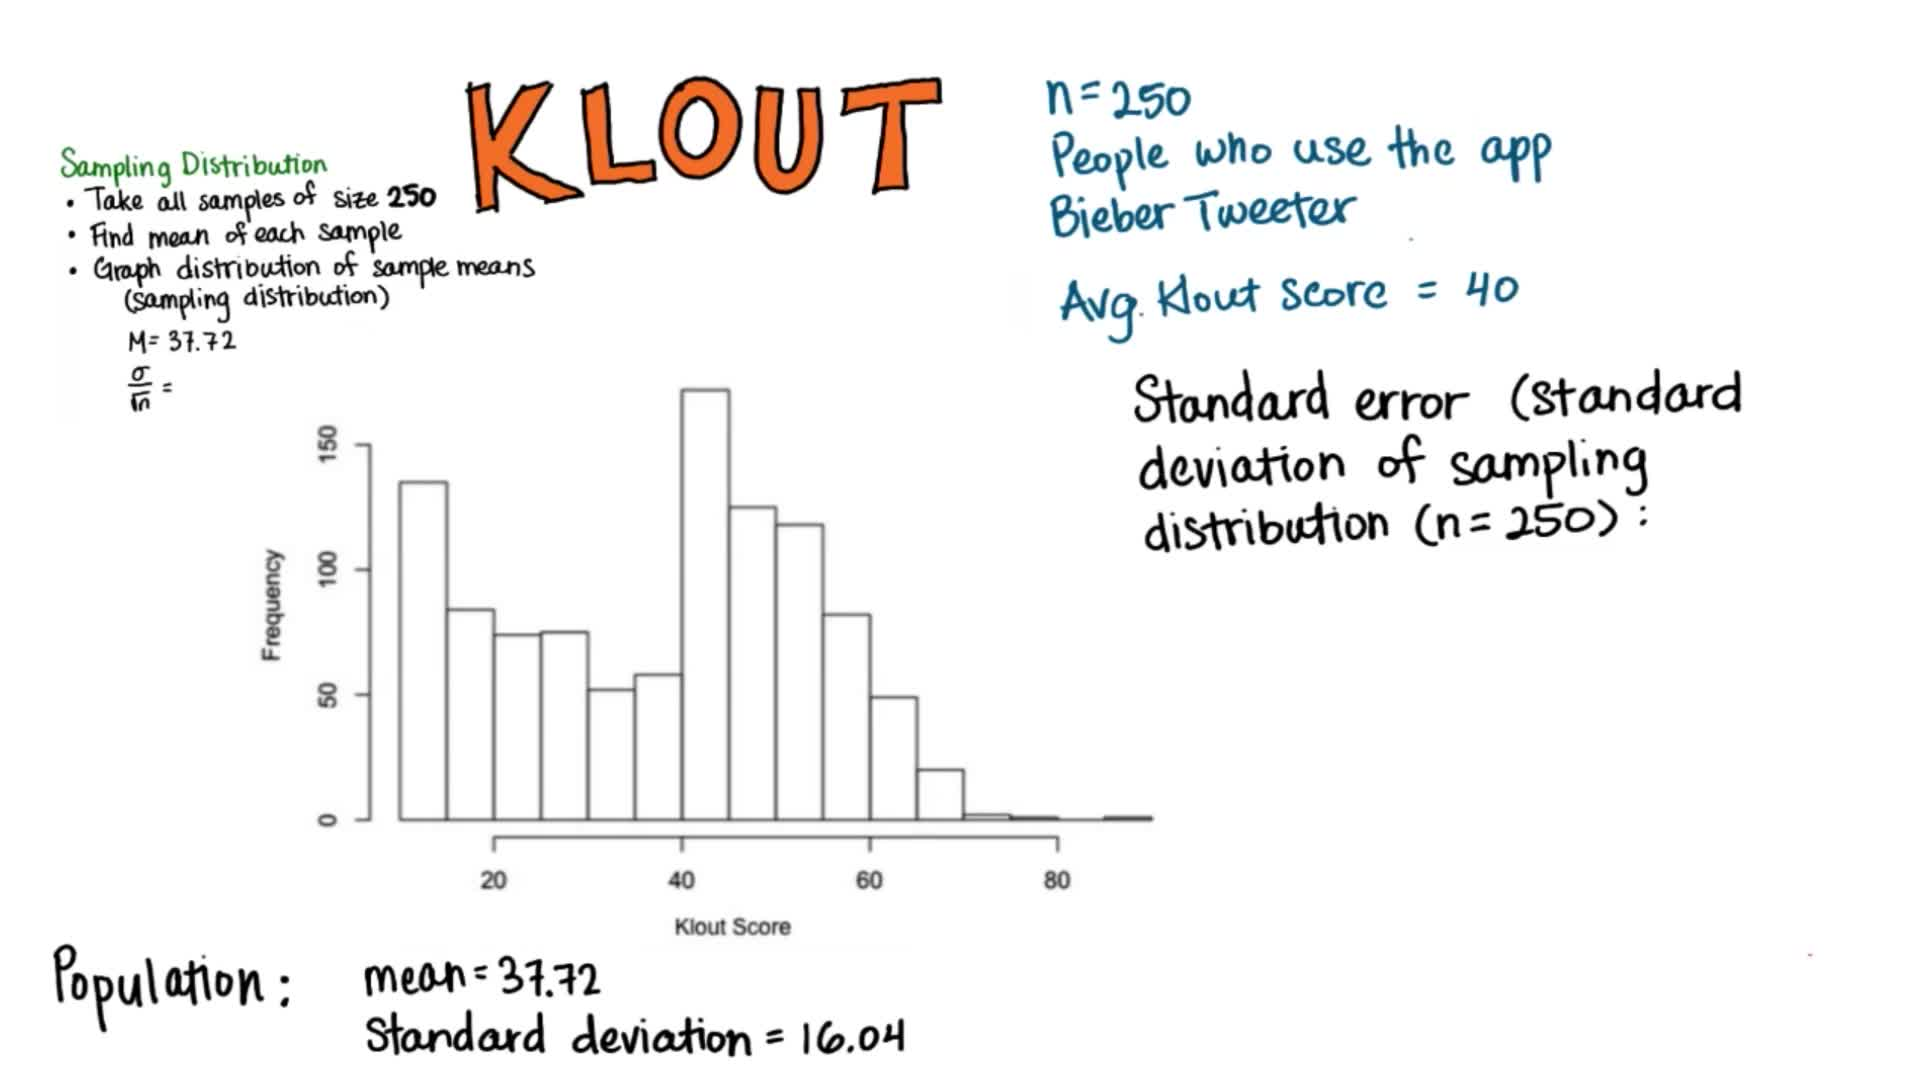 KLOUT
Sampling Distribution
• Take all samples of size 250
• Find mean of each sample
• Graph distribution of sample means
(sampling distribution)
M = 37.72
σ/√n =
n = 250
People who use the app
Bieber Tweeter
Avg. Klout score = 40
Standard error (standard
deviation of sampling
distribution (n = 250) :
Frequency
150
100
50
0
20 40 60 80
Klout Score
Population :
mean = 37.72
Standard deviation = 16.04